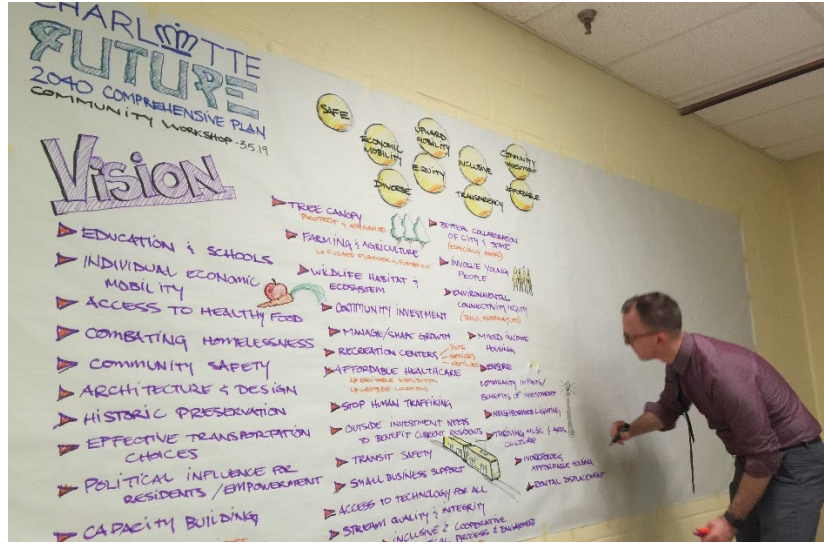 CHARLOTTE
FUTURE
2040 COMPREHENSIVE PLAN
COMMUNITY WORKSHOP - 3.5.19
SAFE
ECONOMIC
MOBILITY
UPWARD
MOBILITY
INCLUSIVE
COMMUNITY
INVESTMENT
DIVERSE
EQUITY
TRANSPARENCY
AFFORDABLE
VISION
EDUCATION & SCHOOLS
INDIVIDUAL ECONOMIC
MOBILITY
ACCESS TO HEALTHY FOOD
COMBATING HOMELESSNESS
COMMUNITY SAFETY
ARCHITECTURE & DESIGN
HISTORIC PRESERVATION
EFFECTIVE TRANSPORTATION
CHOICES
POLITICAL INFLUENCE FOR
RESIDENTS / EMPOWERMENT
CAPACITY BUILDING
TREE CANOPY
PROTECT & ENHANCE
FARMING & AGRICULTURE
PUSHED FURTHER &
WILDLIFE HABITAT &
ECOSYSTEM
COMMUNITY INVESTMENT
MANAGE/SHAPE GROWTH
RECREATION CENTERS
SENIORS
AFFORDABLE HEALTHCARE
STOP HUMAN TRAFFIKING
OUTSIDE INVESTMENT NEEDS
TO BENEFIT CURRENT RESIDENTS
TRANSIT SAFETY
SMALL BUSINESS SUPPORT
ACCESS TO TECHNOLOGY FOR ALL
STREAM QUALITY & INTEGRITY
INCLUSIVE & COOPERATIVE
PROCESS & ENGAGEMENT
BETTER COLLABORATION
OF CITY & STATE
INVOLVE YOUNG
PEOPLE
ENVIRONMENTAL
CONNECTIVITY
MIXED INCOME
HOUSING
ENSURE
COMMUNITY
BENEFITS OF INVESTMENT
NEIGHBORHOOD LIGHTING
THRIVING MUSIC & ARTS
CULTURE
WORKFORCE,
AFFORDABLE HOUSING
RENTAL DISPLACEMENT